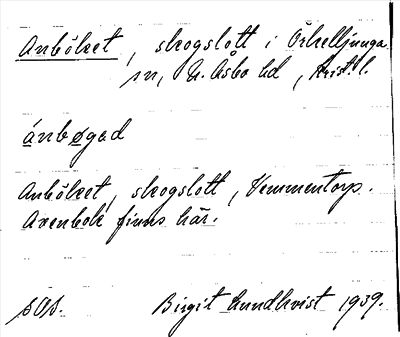 Anböket, skogslott i Örkelljunga
sn, N. Åsbo hd, Krist. l.
ánbøgəd
Anböket, skogslott, Vemmentorp.
Avenbok finns här.
sOs. Birgit Lundkvist 1939.